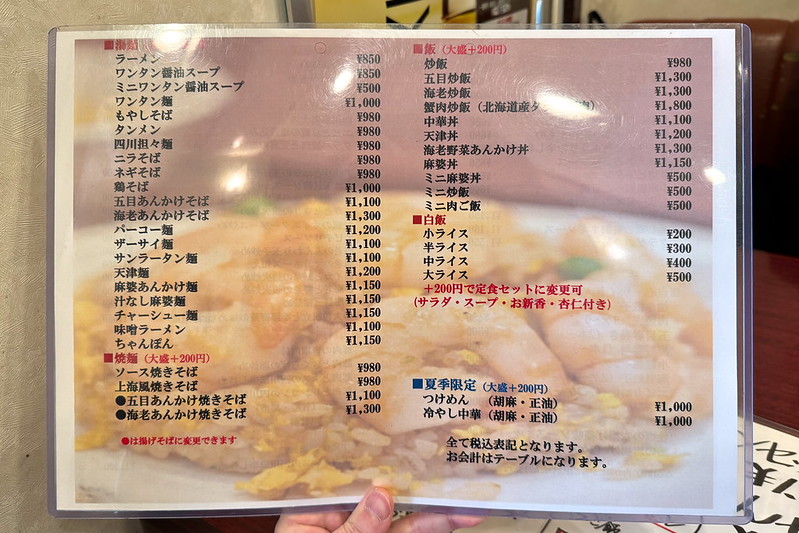 ■湯麺
ラーメン ¥850
ワンタン醤油スープ ¥850
ミニワンタン醤油スープ ¥500
ワンタン麺 ¥1,000
もやしそば ¥980
タンメン ¥980
四川担々麺 ¥980
ニラそば ¥980
ネギそば ¥980
鶏そば ¥1,000
五目あんかけそば ¥1,100
海老あんかけそば ¥1,300
パーコー麺 ¥1,200
ザーサイ麺 ¥1,100
サンラータン麺 ¥1,100
天津麺 ¥1,200
麻婆あんかけ麺 ¥1,150
汁なし麻婆麺 ¥1,150
チャーシュー麺 ¥1,150
味噌ラーメン ¥1,100
ちゃんぽん ¥1,150
■焼麺(大盛+200円)
ソース焼きそば ¥980
上海風焼きそば ¥980
●五目あんかけ焼きそば ¥1,100
●海老あんかけ焼きそば ¥1,300
●は揚げそばに変更できます
■飯(大盛+200円)
炒飯 ¥980
五目炒飯 ¥1,300
海老炒飯 ¥1,300
蟹肉炒飯(北海道産 ¥1,800
中華丼 ¥1,100
天津丼 ¥1,200
海老野菜あんかけ丼 ¥1,300
麻婆丼 ¥1,150
ミニ麻婆丼 ¥500
ミニ炒飯 ¥500
ミニ肉ご飯 ¥500
■白飯
小ライス ¥200
半ライス ¥300
中ライス ¥400
大ライス ¥500
+200円で定食セットに変更可
(サラダ・スープ・お新香・杏仁付き)
■夏季限定(大盛+200円)
つけめん(胡麻・正油) ¥1,000
冷やし中華(胡麻・正油) ¥1,000
全て税込表記となります。
お会計はテーブルになります。